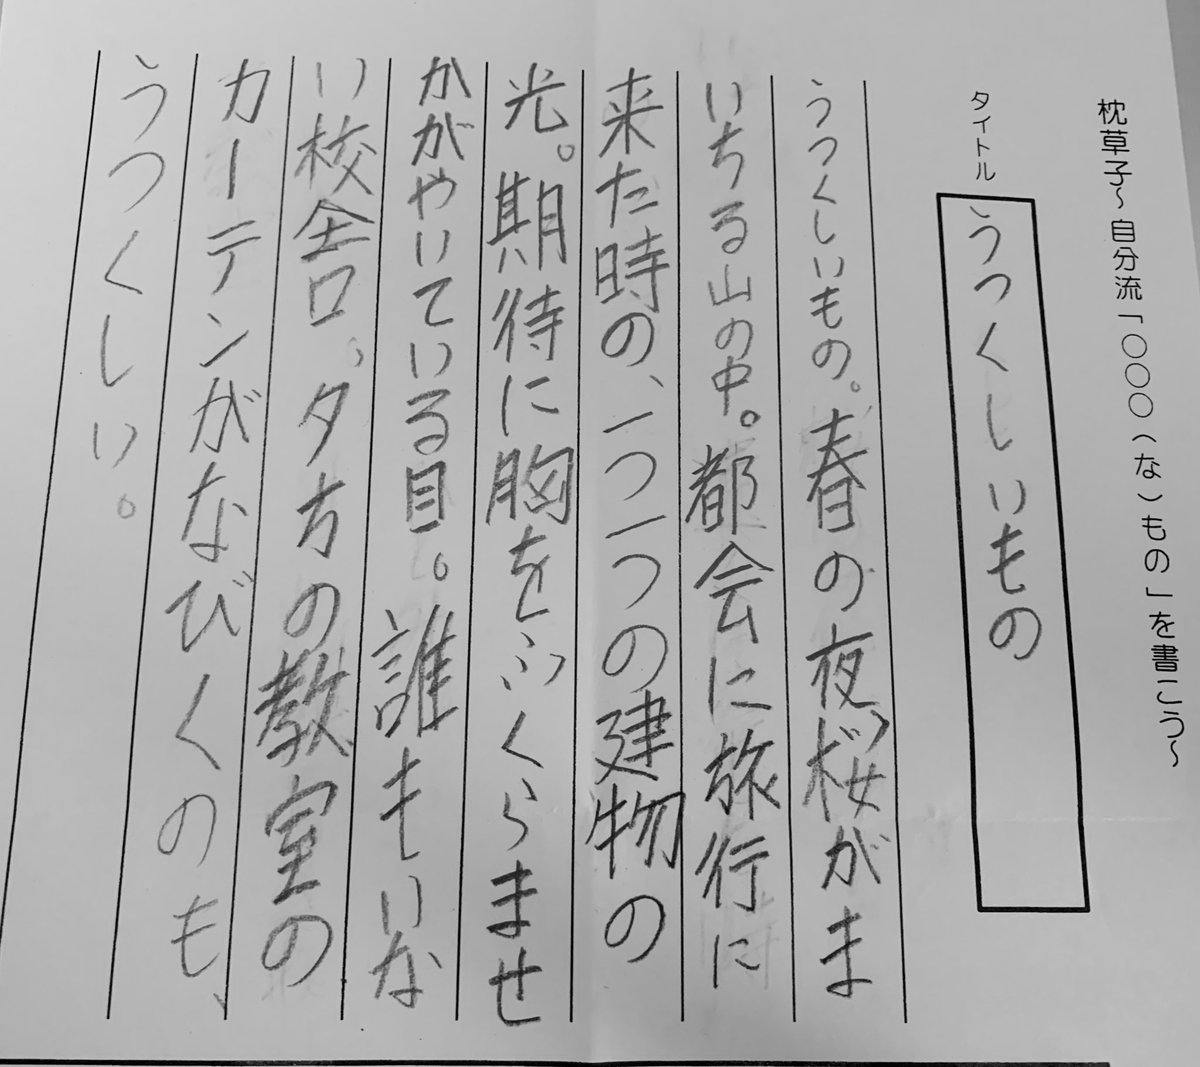 枕草子～自分流「○○○(な)もの」を書こう～
タイトル
うつくしいもの
うつくしいもの。春の夜、桜がま
いちる山の中。都会に旅行に
来た時の、一つ一つの建物の
光。期待に胸をふくらませ
かがやいている目。誰もいな
い校舎、夕方の教室の
カーテンがなびくのも、
うつくしい。